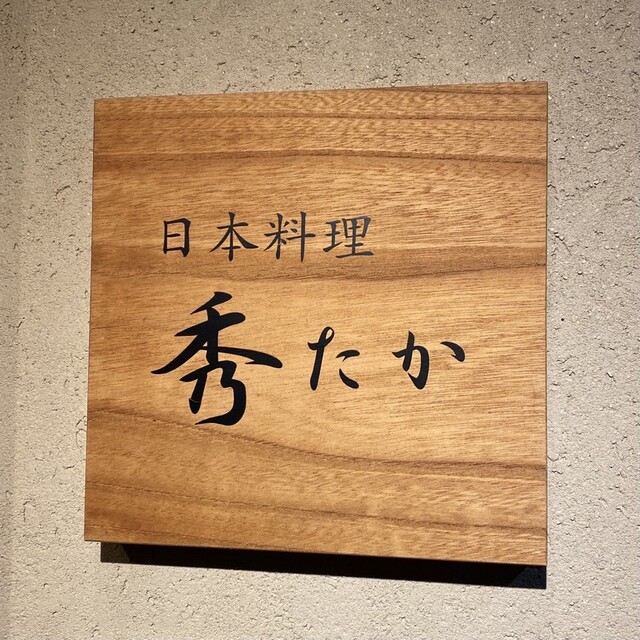 日本料理
秀たか